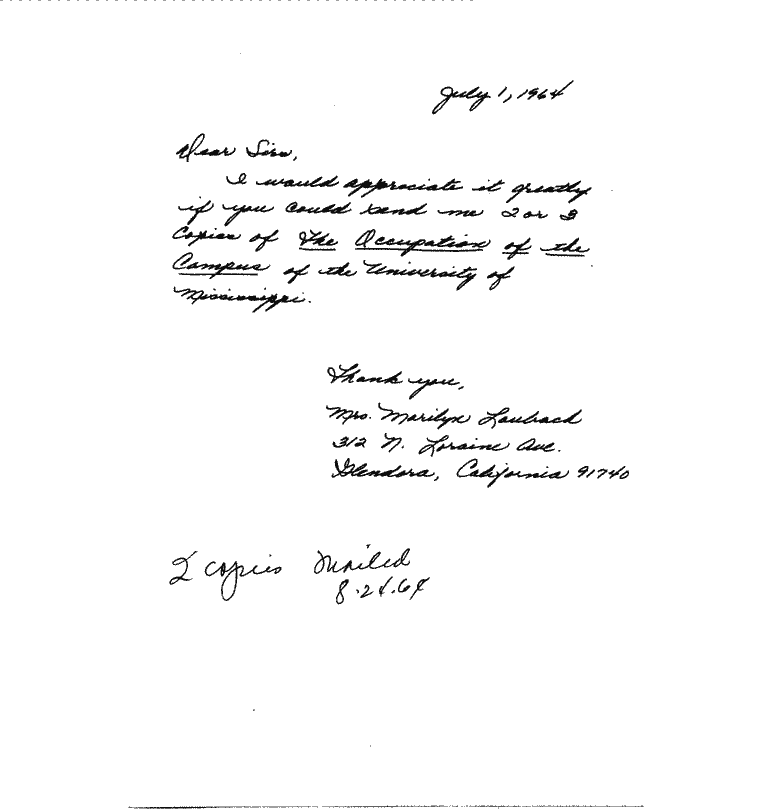 July 1, 1964
Dear Sirs,
I would appreciate it greatly
if you could send me 2 or 3
Copies of The Occupation of the
Campus of the University of
Mississippi.
Thank you,
Mrs. Marilyn Laubach
312 N. Loraine Ave.
Glendora, California 91740
2 copies Mailed
8.24.64